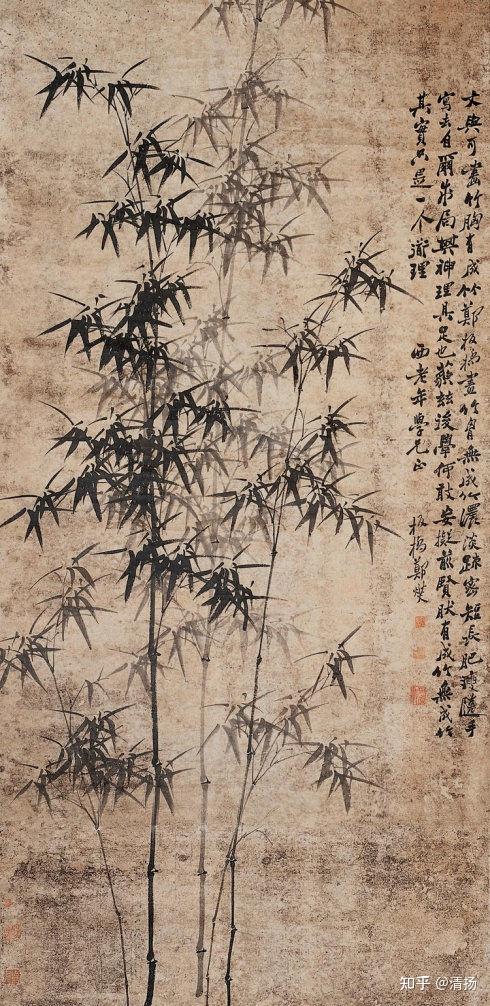 文與可畫竹胸有成竹鄭板橋畫竹胸無成竹濃淡疎密短長肥瘦隨手
寫去自爾成局其神理具足也藐茲後學何敢妄擬前賢然有成竹無成竹
其實只是一个道理 酉老年學兄正 板橋鄭燮
知乎 @清扬